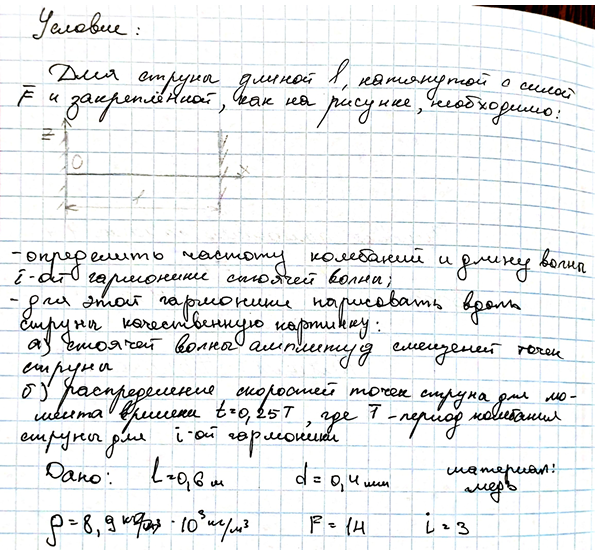 Условие:
Для струны длиной l, натянутой с силой
F и закреплённой, как на рисунке, необходимо:
Z
O
x
l
- определить частоту колебаний и длину волны
i-ой гармоники стоячей волны;
- для этой гармоники нарисовать вдоль
струны качественную картинку:
а) стоячей волны амплитуд смещений точек
струны
б) распределение скоростей точек струна для мо-
мента времени t=0,25T, где T - период колебания
струны для i-ой гармоники
Дано: l=0,6 м d=0,4 мм материал:
медь
ρ=8,9 · 10³ кг/м³ F=14 i=3